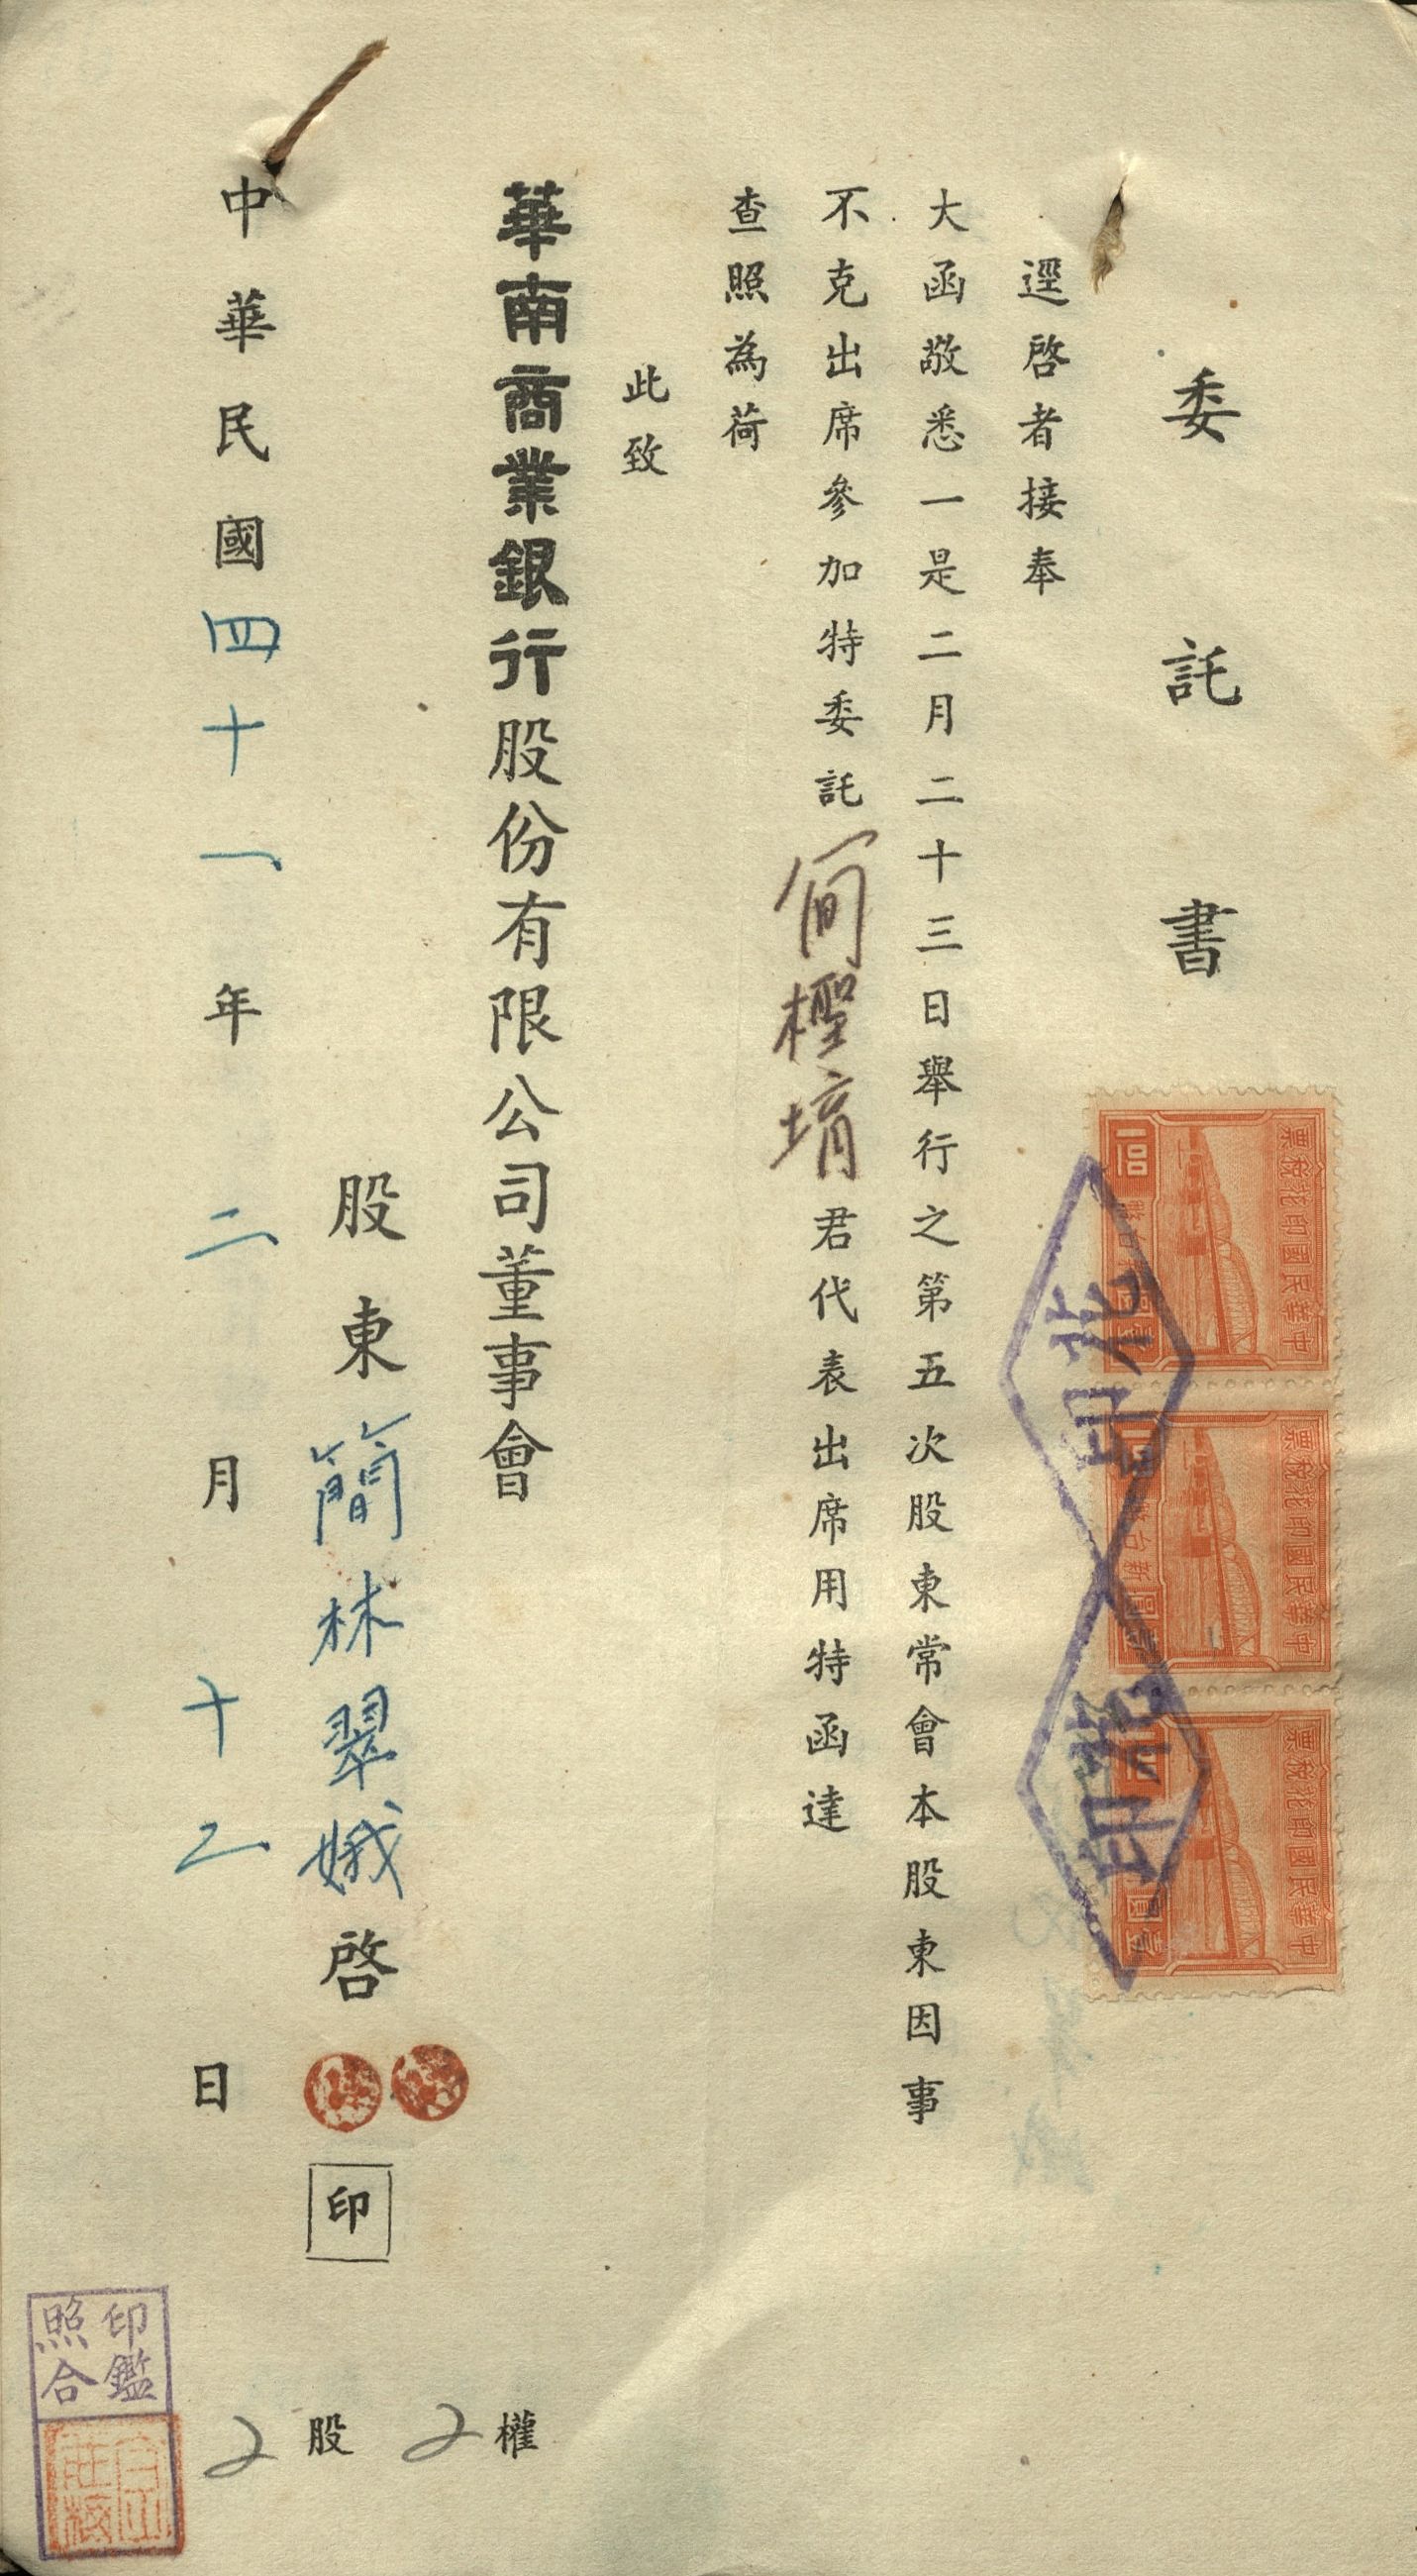 委託書
逕啓者接奉
大函敬悉一是二月二十三日舉行之第五次股東常會本股東因事
不克出席參加特委託簡檉堉君代表出席用特函達
查照為荷
此致
華南商業銀行股份有限公司董事會
股東簡林翠娥啓
印
中華民國四十一年二月十二日
2權
2股
印鑑
照合
中華民國印花稅票
中華民國印花稅票
中華民國印花稅票
印花
印花